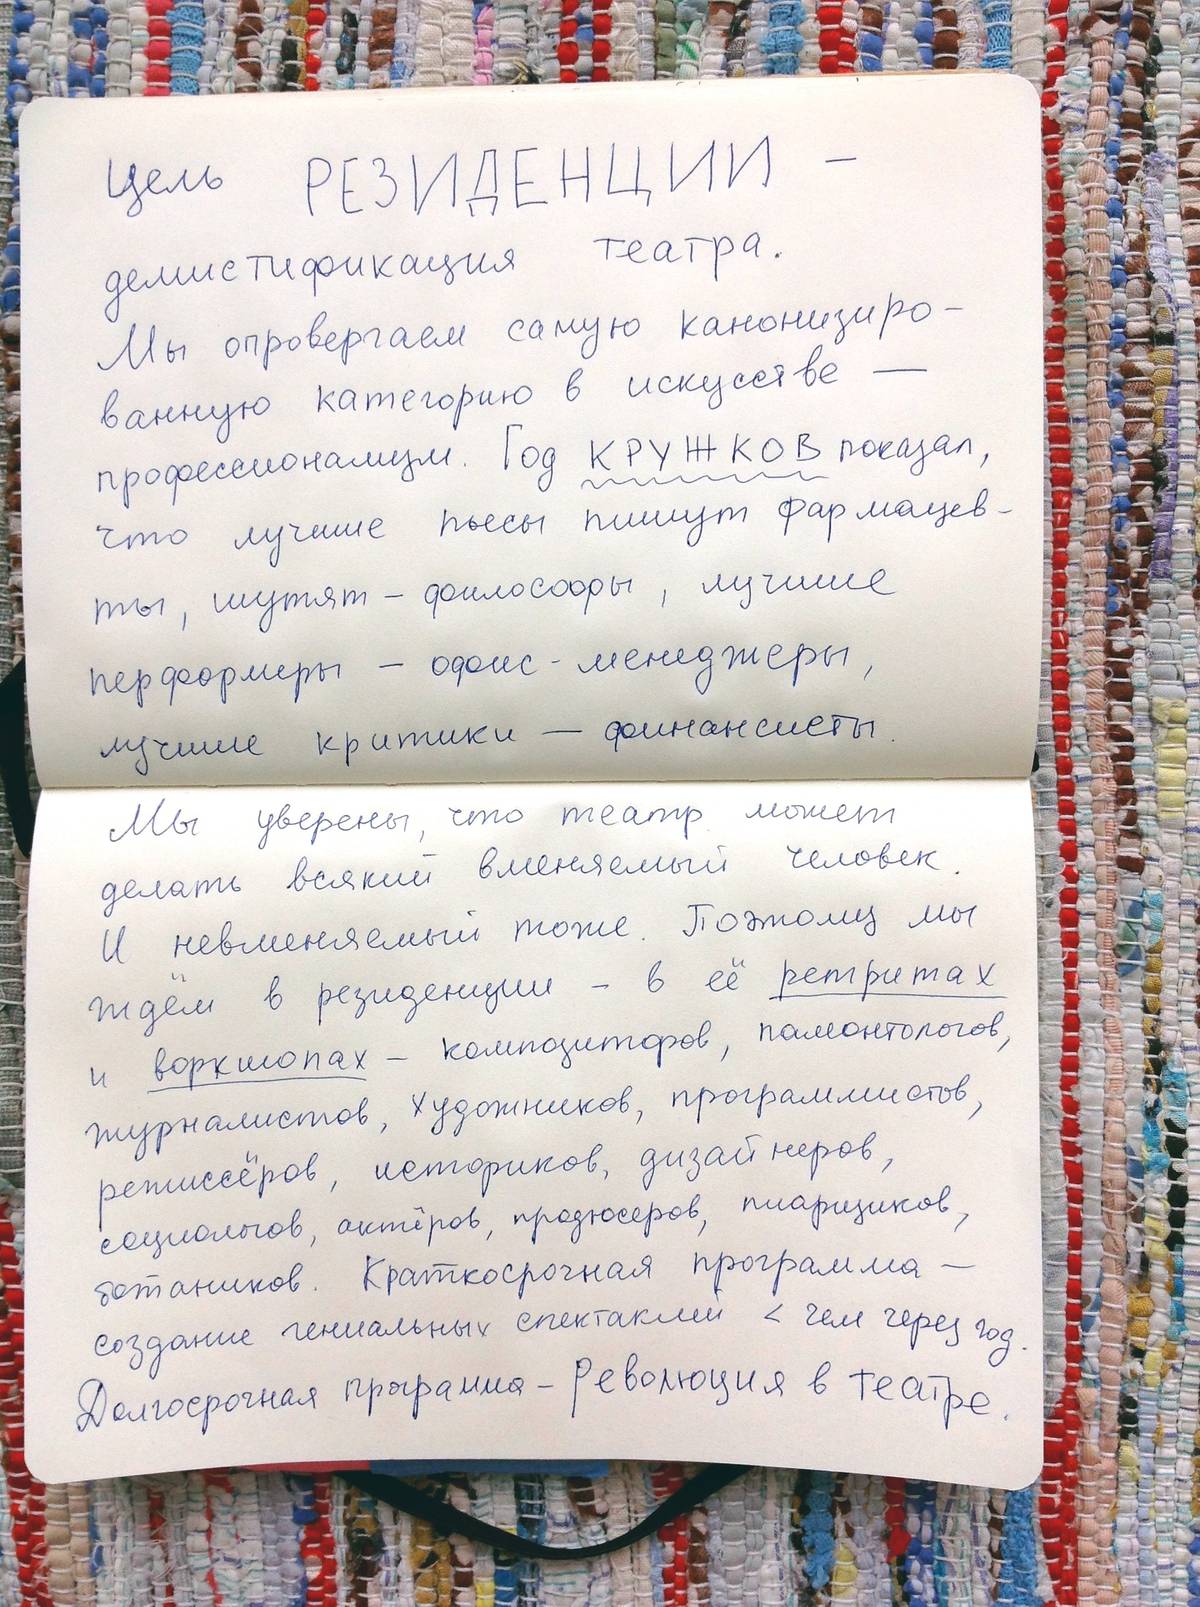 Цель РЕЗИДЕНЦИИ –
демистификация театра.
Мы опровергаем самую канонизиро-
ванную категорию в искусстве —
профессионализм. Год КРУЖКОВ показал,
что лучшие пьесы пишут фармацев-
ты, шутят – философы, лучшие
перформеры – офис-менеджеры,
лучшие критики — финансисты.
Мы уверены, что театр может
делать всякий вменяемый человек.
И невменяемый тоже. Поэтому мы
ждём в резиденции – в её ретритах
и воркшопах – композиторов, палеонтологов,
журналистов, художников, программистов,
режиссёров, историков, дизайнеров,
социологов, актёров, продюсеров, пиарщиков,
ботаников. Краткосрочная программа –
создание гениальных спектаклей < чем через год.
Долгосрочная программа – Революция в театре.